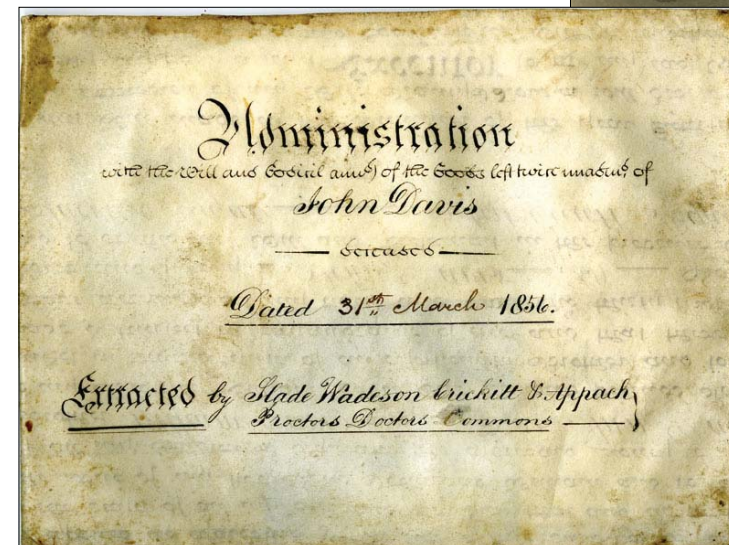 Administration
with the Will and Codicil anxd) of the Goods left twice unadmd of
John Davis
deceased
Dated 31st March 1856.
Extracted by Slade Wadeson Crickitt & Appach
Proctors Doctors Commons